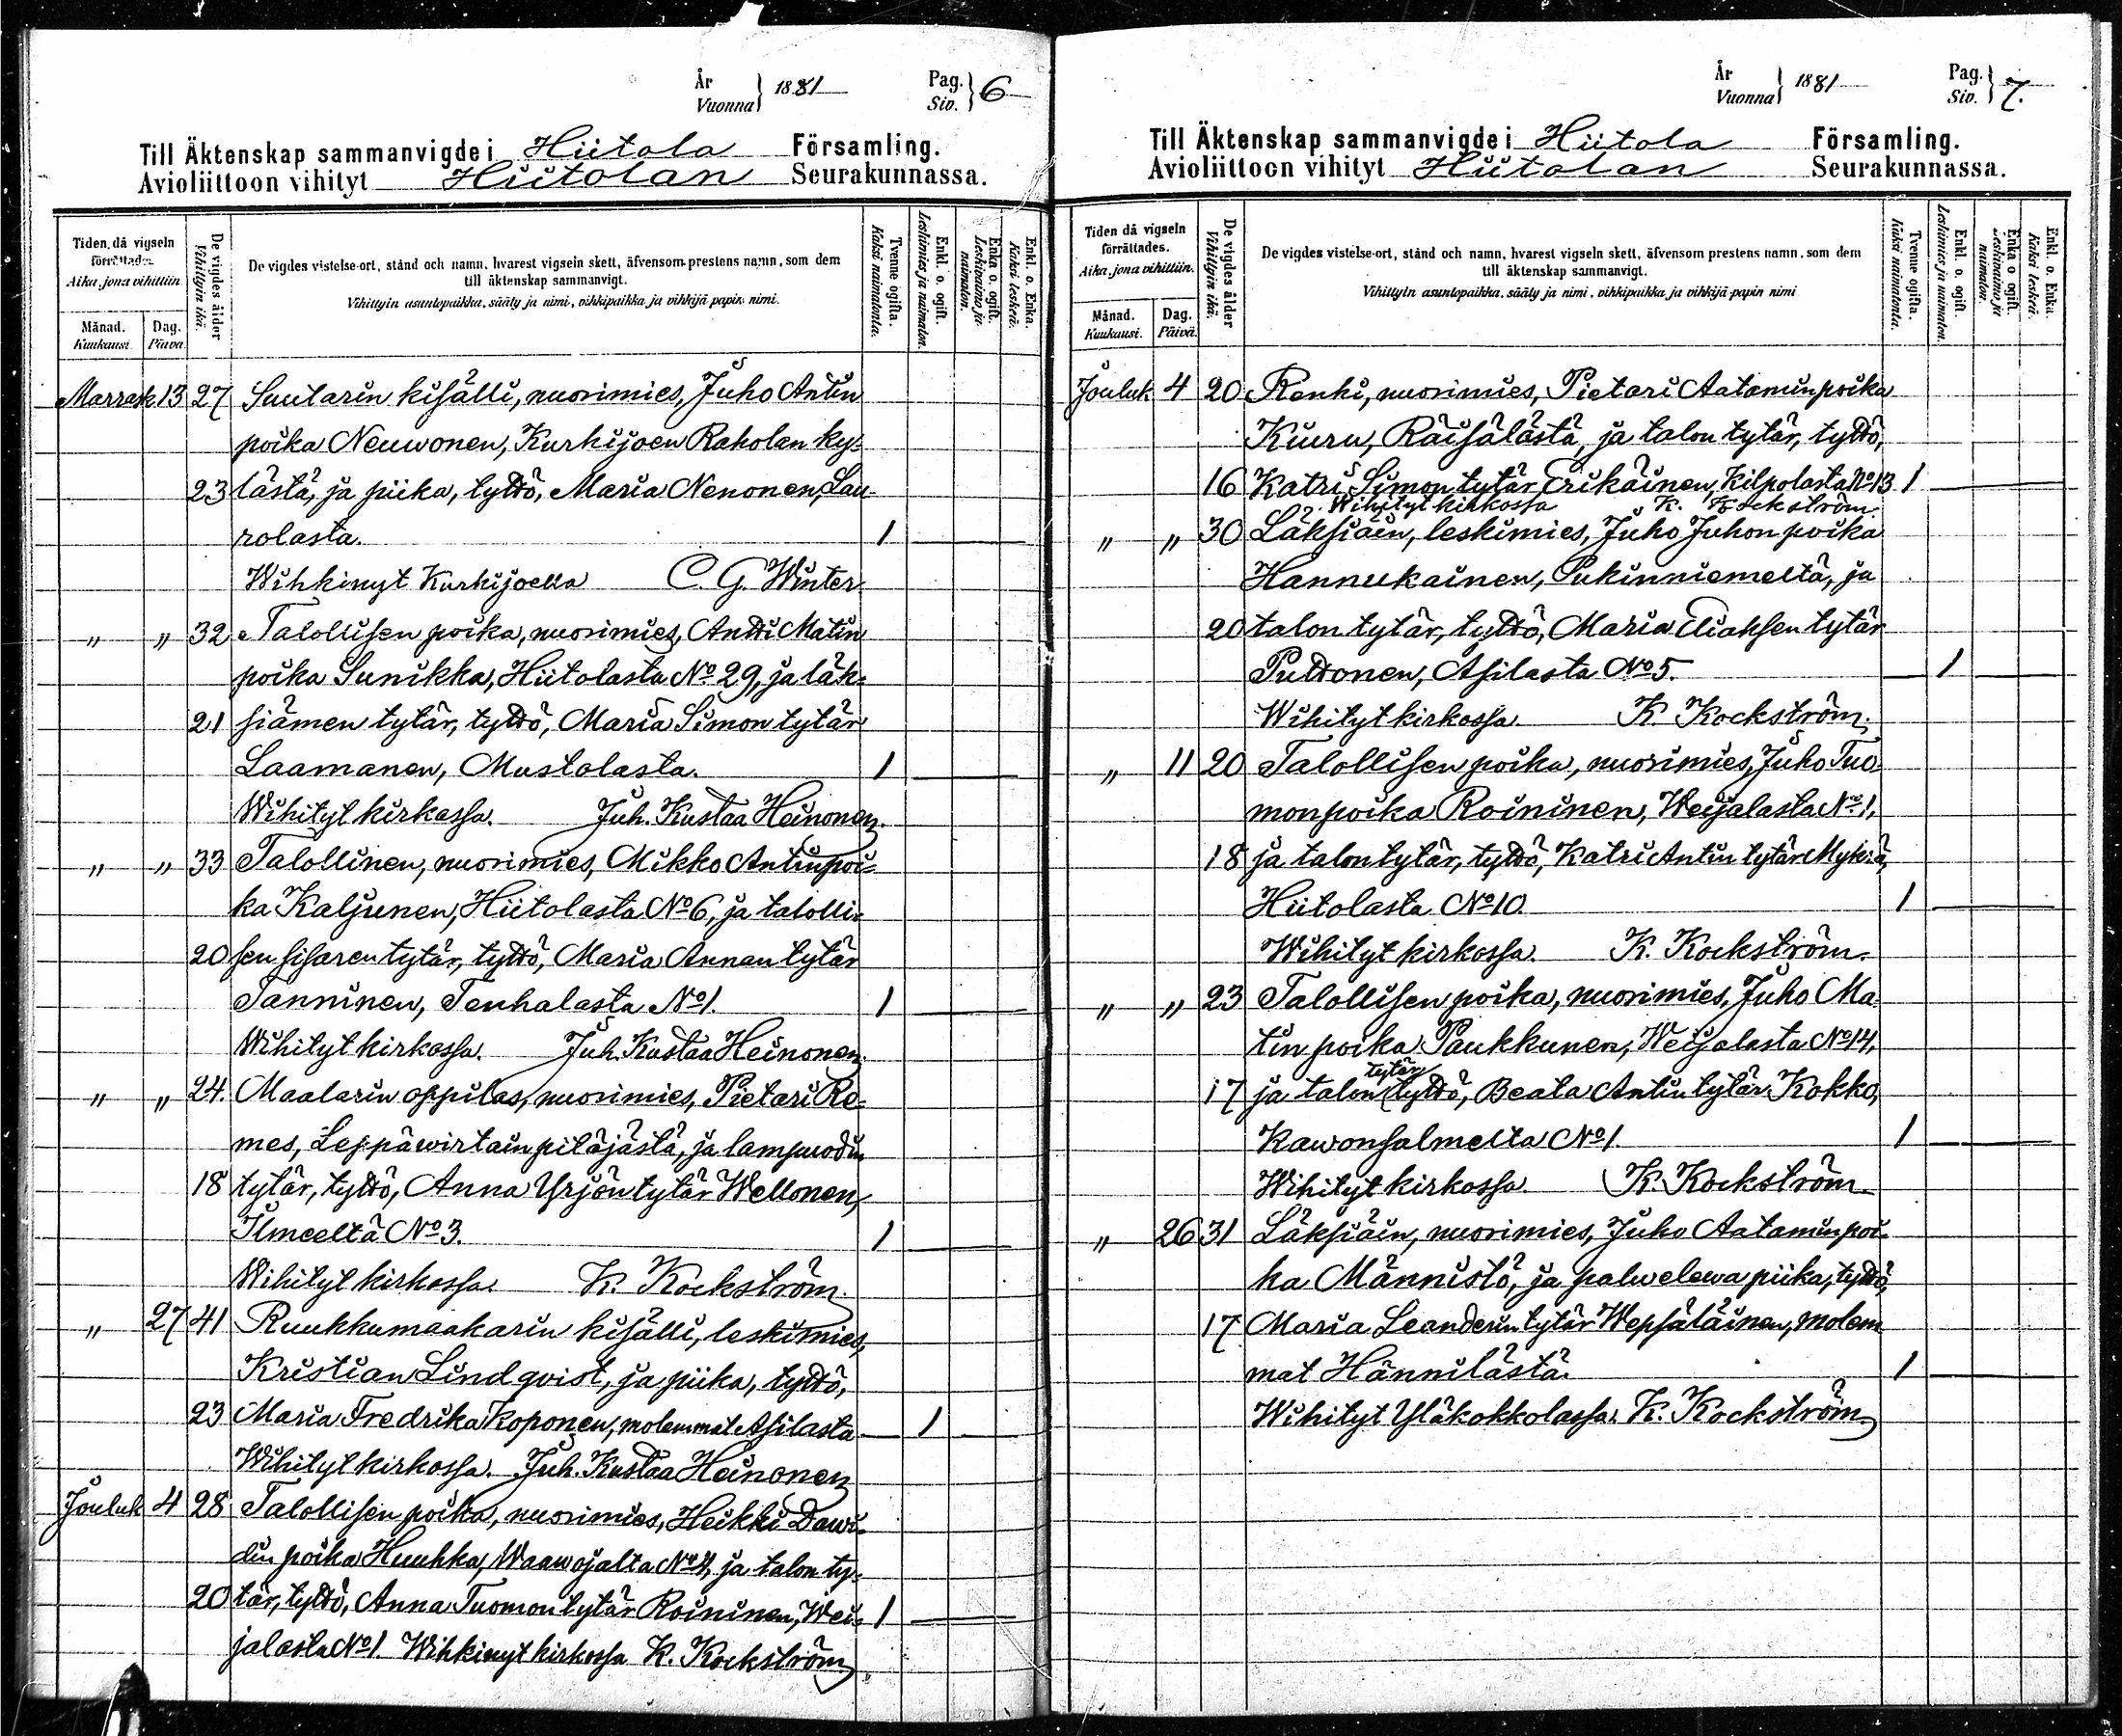 År Vuonna 1881 Pag. Siv. 6
Till Äktenskap sammanvigde i Hiitola Församling.
Avioliittoon vihityt Hiitolan Seurakunnassa.
Tiden, då vigseln förrättades.
Aika, jona vihittiin.
Månad. Kuukausi.
Dag. Päivä.
De vigdes ålder
Vihittyin ikä.
De vigdes vistelse-ort, stånd och namn, hvarest vigseln skett, äfvensom prestens namn, som dem
till äktenskap sammanvigt.
Vihittyin asuntopaikka, sääty ja nimi, vihkipaikka ja vihkijä-papin nimi.
Tvenne ogifta.
Kaksi naimatonta.
Enkl. o. ogift.
Leskimies ja naimaton.
Enka o. ogift.
Leskivaimo ja naimaton.
Enkl. o. Enka.
Kaksi leskeä.
Marrask. 13 27 Suutarin kisälli, nuorimies, Juho Antin
poika Neuwonen, Kurhijoen Raholan ky-
23 lästä, ja piika, tyttö, Maria Nenonen, Lau-
rolasta. 1
Wihkinyt Kurkijoella C. G. Winter.
" " 32 Talollisen poika, nuorimies, Antti Matin
poika Sunikka, Hiitolasta No 29, ja läk-
21 siämen tytär, tyttö, Maria Simon tytär
Laamanen, Mustolasta. 1
Wihityt kirkossa. Juh. Kustaa Heinonen.
" " 33 Talollinen, nuorimies, Mikko Antinpoi-
ka Kaljunen, Hiitolasta No 6, ja talolli-
20 sen sisaren tytär, tyttö, Maria Annan tytär
Tanninen, Tenhalasta No 1. 1
Wihityt kirkossa. Juh. Kustaa Heinonen.
" " 24. Maalarin oppilas, nuorimies, Pietari Re-
mes, Leppäwirtain pitäjästä, ja lampuodin
18 tytär, tyttö, Anna Yrjön tytär Wellonen,
Ilmeeltä No 3. 1
Wihityt kirkossa. K. Kockström.
" 27 41 Ruukkumaakarin kisälli, leskimies,
Kristian Lindqvist, ja piika, tyttö,
23 Maria Fredrika Koponen, molemmat Asilasta 1
Wihityt kirkossa. Juh. Kustaa Heinonen
Jouluk 4 28 Talollisen poika, nuorimies, Heikki Dawi-
din poika Huuhka, Waawojalta No 4, ja talon ty-
20 tär, tyttö, Anna Tuomon tytär Roininen, Wei- 1
jalasta No 1. Wihkinyt kirkossa K. Kockström
År Vuonna 1881 Pag. Siv. 7.
Till Äktenskap sammanvigde i Hiitola Församling.
Avioliittoon vihityt Hiitolan Seurakunnassa.
Tiden då vigseln förrättades.
Aika, jona vihittiin.
Månad. Kuukausi.
Dag. Päivä.
De vigdes ålder
Vihittyin ikä.
De vigdes vistelse-ort, stånd och namn, hvarest vigseln skett, äfvensom prestens namn, som dem
till äktenskap sammanvigt.
Vihittyin asuntopaikka, sääty ja nimi, vihkipaikka ja vihkijä-papin nimi
Tvenne ogifta.
Kaksi naimatonta.
Enkl. o. ogift.
Leskimies ja naimaton.
Enka o ogift.
Leskivaimo ja naimaton.
Enkl. o. Enka.
Kaksi leskeä.
Jouluk. 4 20 Renki, nuorimies, Pietari Aatamin poika
Kiuru, Räisälästä, ja talon tytär, tyttö,
16 Katri Simon tytär Erikäinen, Kilpolasta No 13 1
Wihityt kirkossa K. Kockström.
" " 30 Läksiäin, leskimies, Juho Juhon poika
Hannukainen, Pukinniemeltä, ja
20 talon tytär, tyttö, Maria Eliaksen tytär
Puttonen, Asilasta No 5. 1
Wihityt kirkossa. K. Kockström.
" 11 20 Talollisen poika, nuorimies, Juho Tuo-
mon poika Roininen, Weijalasta No 1,
18 ja talon tytär, tyttö, Katri Antin tytär Mykrä,
Hiitolasta No 10. 1
Wihityt kirkossa. K. Kockström.
" " 23 Talollisen poika, nuorimies, Juho Ma-
tin poika Paukkunen, Weijalasta No 14,
tytär
17 ja talon tyttö, Beata Antin tytär Kokko,
Kawonsalmelta No 1. 1
Wihityt kirkossa. K. Kockström.
" 26 31 Läksiäin, nuorimies, Juho Aatamin poi-
ka Männistö, ja palwelewa piika, tyttö,
17 Maria Leanderin tytär Wepsäläinen, molem
mat Hännilästä. 1
Wihityt Yläkokkolassa. K. Kockström